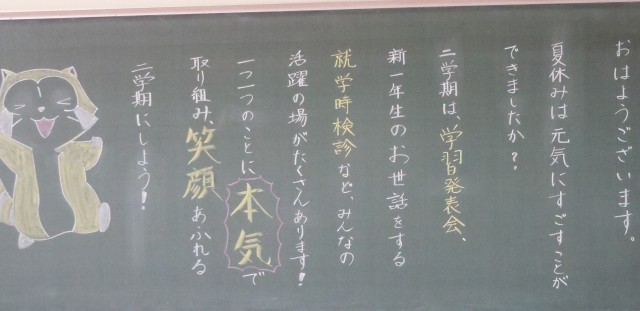 おはようございます。
夏休みは元気にすごすことが
できましたか？
二学期は、学習発表会、
新一年生のお世話をする
就学時検診など、みんなの
活躍の場がたくさんあります！
一つ一つのことに本気で
取り組み、笑顔あふれる
二学期にしよう！